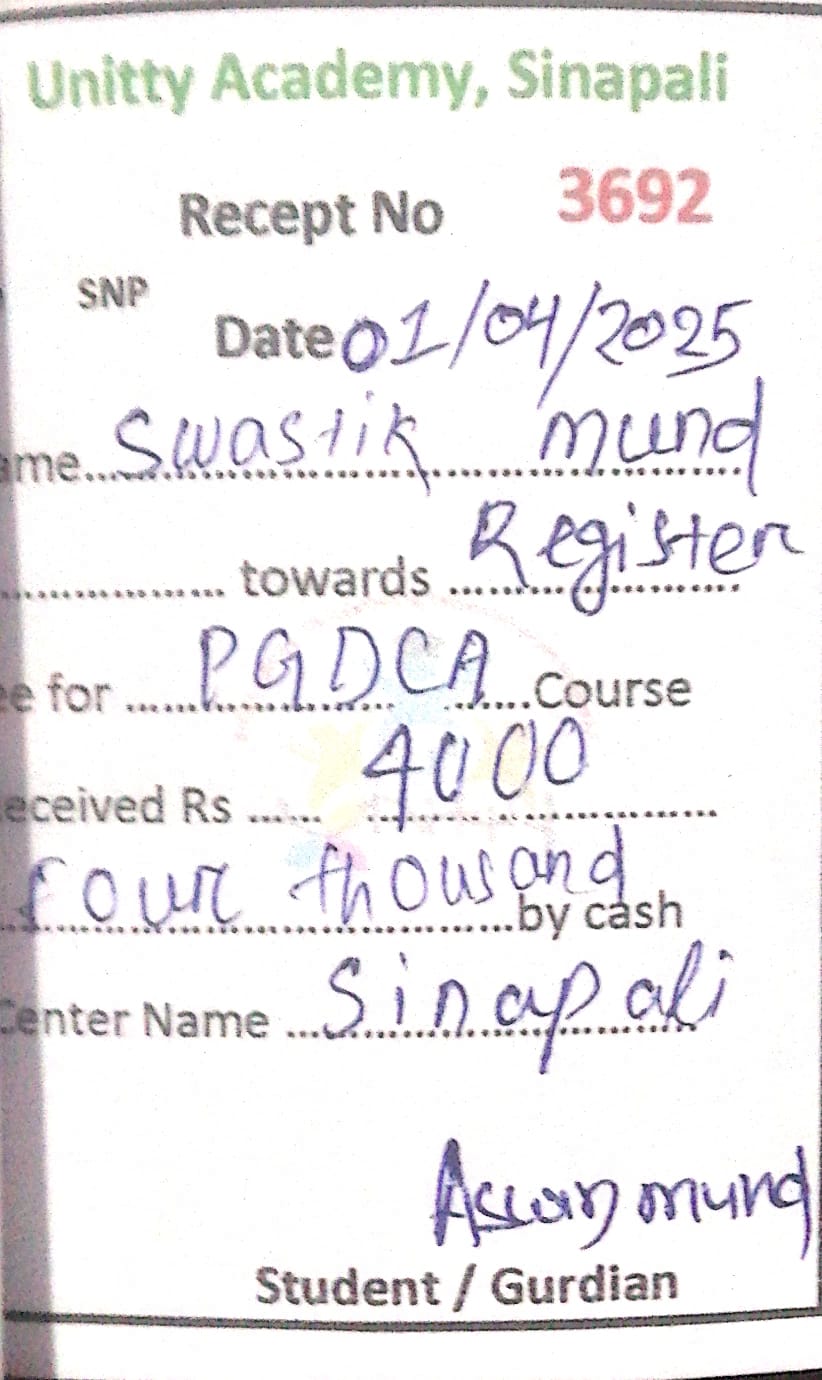 Unitty Academy, Sinapali
Recept No 3692
SNP
Date 01/04/2025
ame... Swastik mund
............... towards ... Register
e for ...... PGDCA ......Course
eceived Rs ...... 4000 ...............
four thousand ...by cash
Center Name ... Sinapali
mund
Student / Gurdian